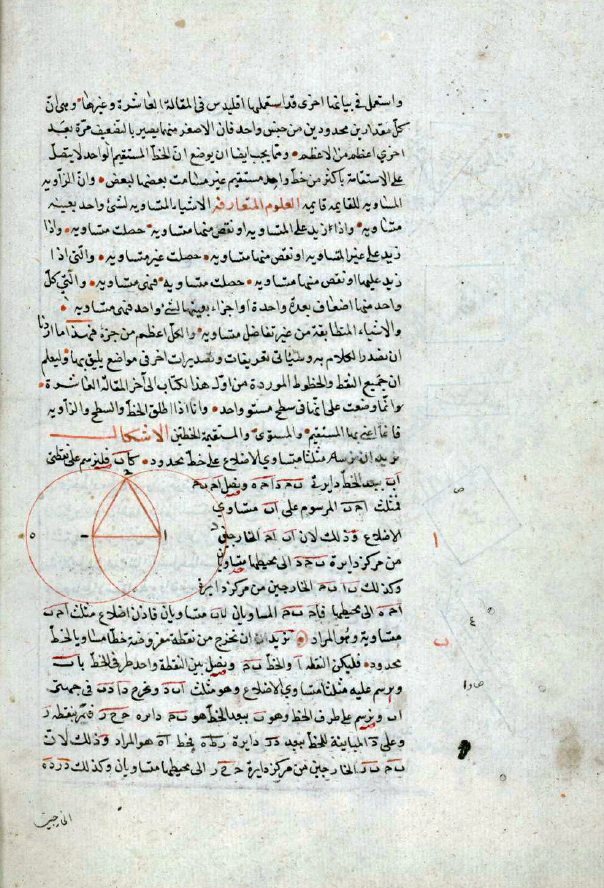 واستعمل في بيانها اخرى قد استعملها اقليدس في المقالة العاشرة وغيرها وهي ان
كل مقدارين محدودين من جنس واحد فان الاصغر منهما يصير بالتضعيف مرة بعد
اخرى اعظم من الاعظم ومما يجب ايضا ان يوضع ان الخط المستقيم الواحد لا يتصل
على الاستقامة باكثر من خط واحد مستقيم غير مسامت بعضها لبعض وان الزاويه
المساويه للقايمه قايمه العلوم المتعارفه الاشياء المتساويه لشئ واحد بعينه
متساويه واذا زيد على المتساويه او نقص منها متساويه حصلت متساويه واذا
زيد على غير المتساويه او نقص منها متساويه حصلت غير متساويه والتي اذا
زيد عليها او نقص منها متساويه حصلت متساويه فهي متساويه والتي كل
واحد منها اضعاف بعدة واحدة او اجزاء بعينها لشئ واحد فهي متساويه
والاشياء المتطابقة من غير تفاضل متساويه والكل اعظم من جزءه فهذا ما اردنا
ان نصدر الكلام به وسيأتي تعريفات وتصديرات اخر في مواضع يليق بها وليعلم
ان جميع النقط والخطوط الموردة من اول هذا الكتاب الى آخر المقالة العاشرة
وانما وضعت على انها في سطح مستو واحد وانا اذا اطلق الخط والسطح والزاويه
فانما اعني بها المستقيم والمستوى والمستقيمة الخطين الاشكال
نريد ان نرسم مثلثا متساوي الاضلاع على خط محدود كاب فلنرسم على نقطتي
اب ببعد الخط دايرة ونصل
فمثلث اح‍ب المرسوم على اب متساوي
الاضلاع وذلك لان اب اح الخارجين
من مركز دايرة الى محيطها متساويان
وكذلك الخارجين من مركز دايرة
الى محيطها المساويان لاب متساويان فاذن اضلاع مثلث
متساوية وهو المراد نريد ان نخرج من نقطة مفروضة خطا مساويا لخط
محدود فليكن النقطه ا والخط ونصل بين النقطة واحد طرفي الخط باب
ونرسم عليه مثلثا متساوي الاضلاع وهو مثلث ونخرج في جهتي
اب ونرسم على طرف الخط وهو ب ببعد الخط هو دايره فتمر بنقطه
وعلى د المباينة للخط ببعد دايرة يخط اه هو المراد وذلك لان
الخارجين من مركز دايرة الى محيطها متساويان وكذلك
الخارجين